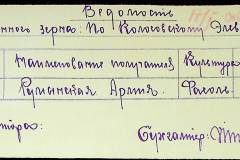 Ведомость
нного зерна: По Колосовскому Элев
Наименование получателя Культура
Румынская Армия. Фасоль
Бухгалтер: